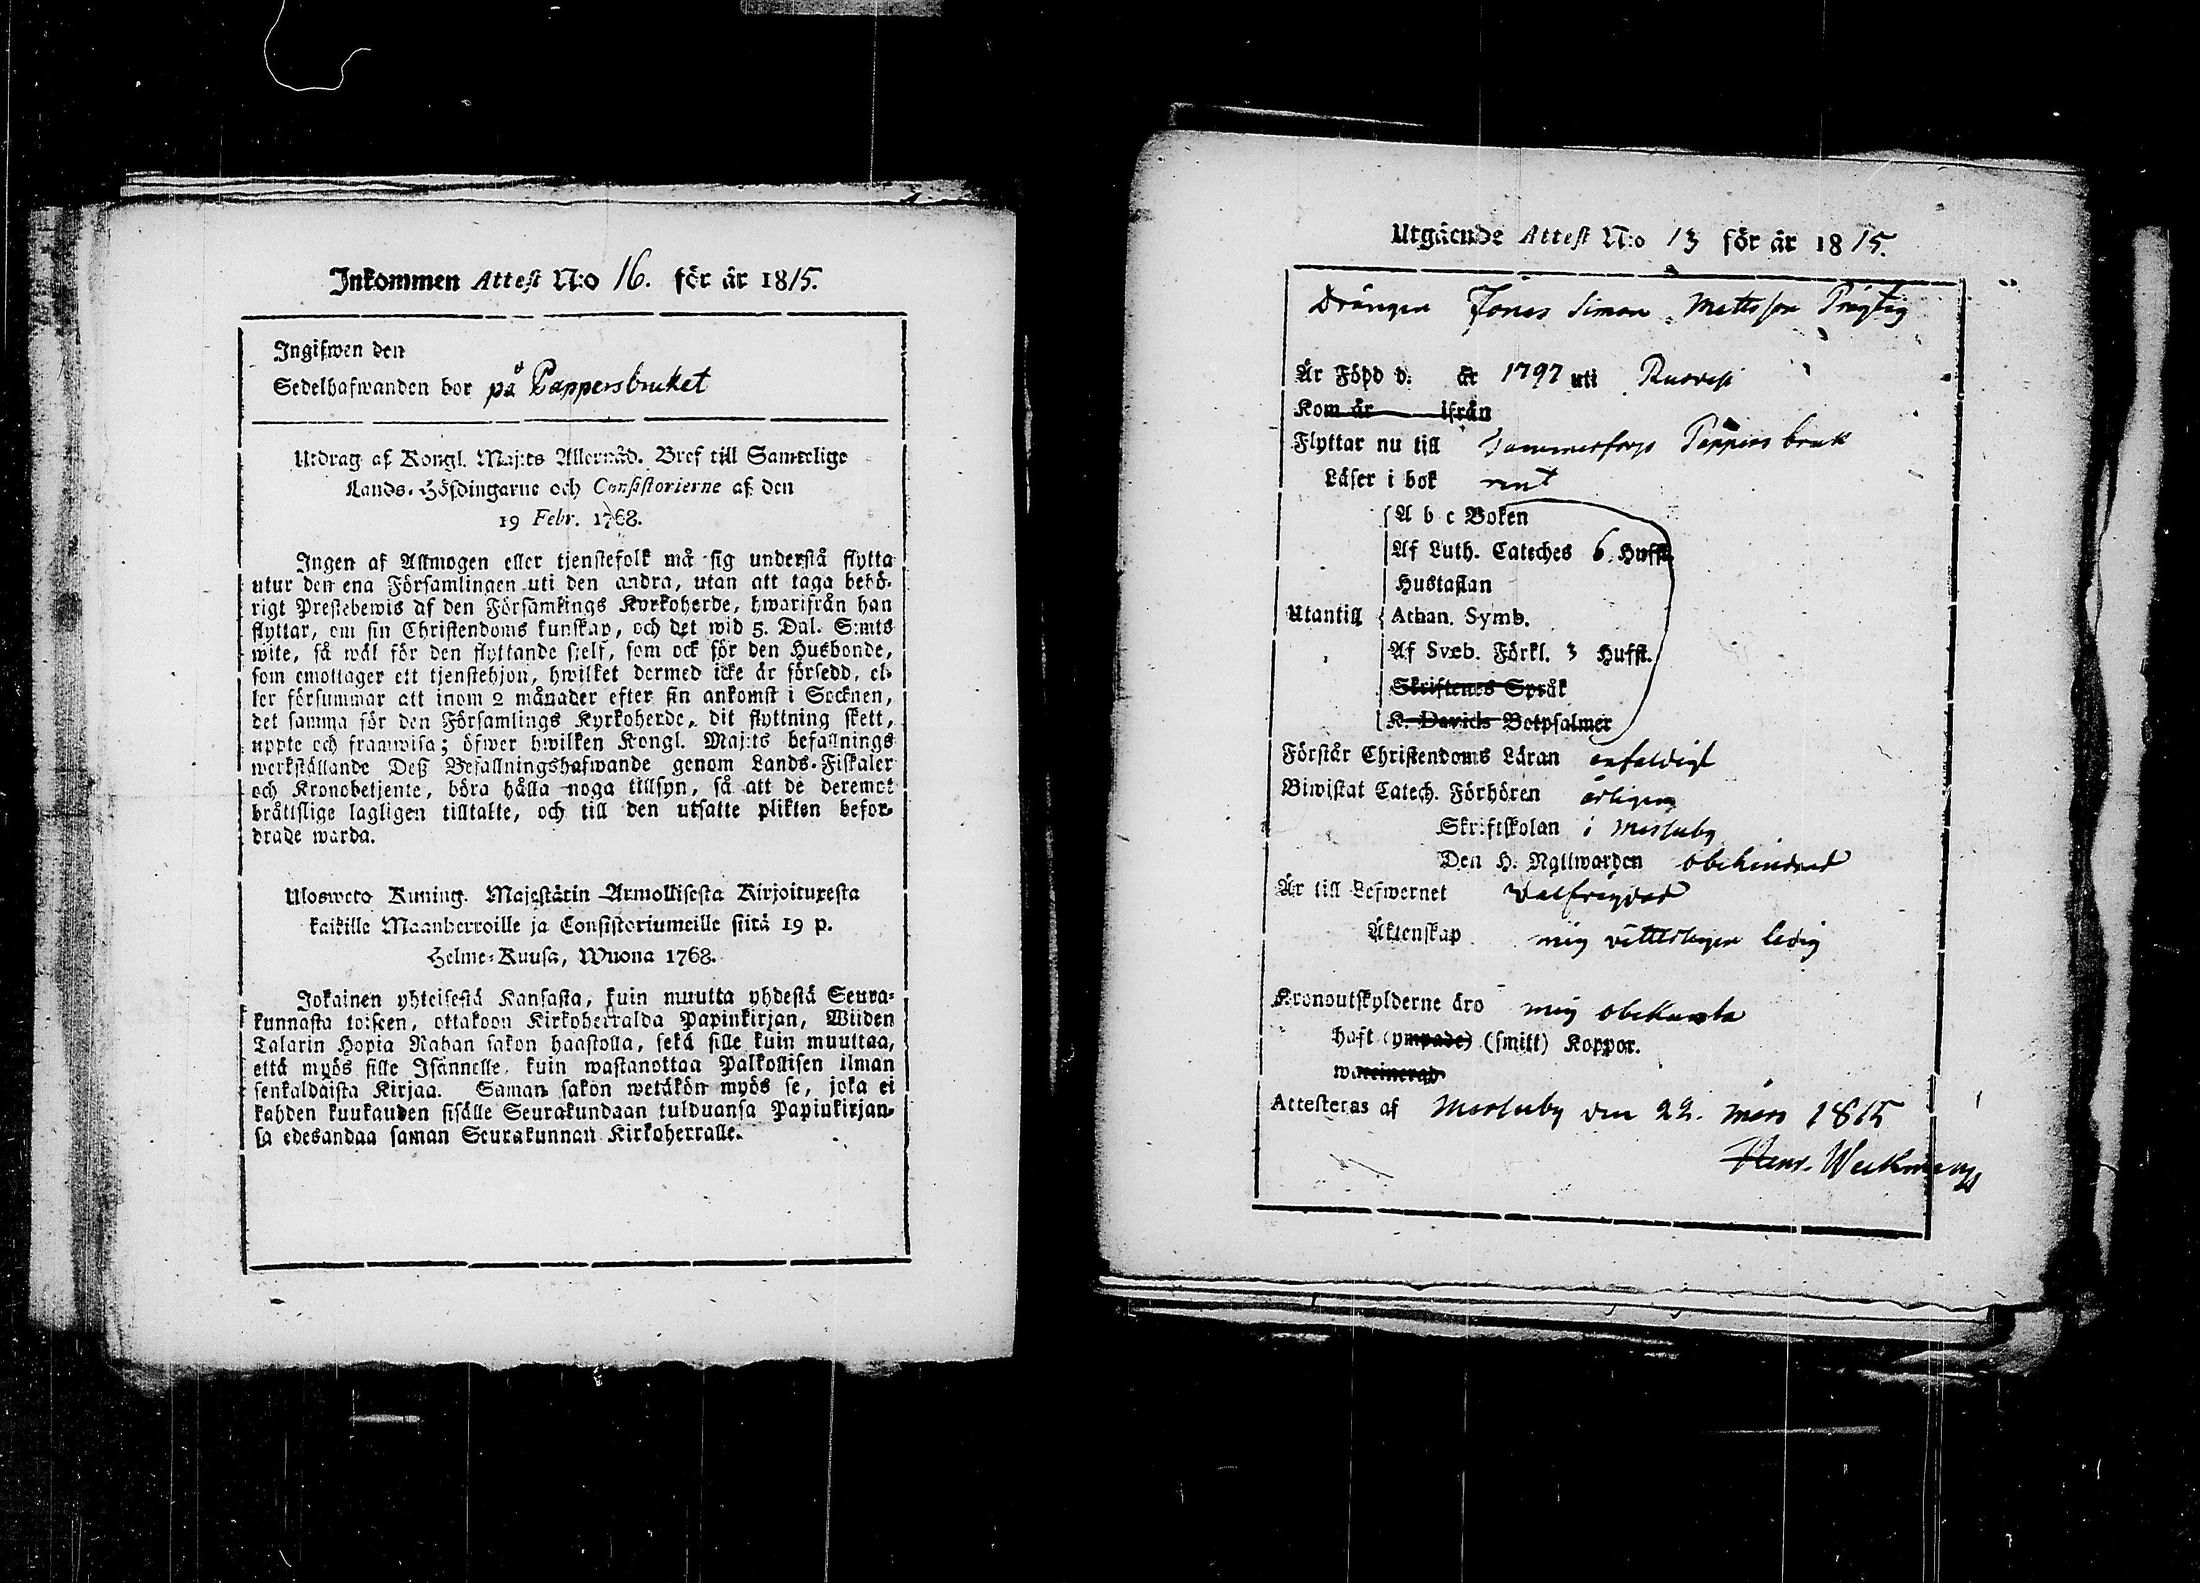 Inkommen Attest N:o 16. för år 1815.
Ingifwen den
Sedelhafwanden bor på Pappersbruket
Utdrag af Kongl. Maj:ts Allernåd. Bref till Samtelige
Lands-Höfdingarne och Consistorierne af den
19 Febr. 1768.
Ingen af Allmogen eller tjenstefolk må sig understå flytta
utur den ena Församlingen uti den andra, utan att taga behö-
rigt Prestebewis af den Församlings Kyrkoherde, hwarifrån han
flyttar, om sin Christendoms kunskap, och det wid 5. Dal. S:mts
wite, så wäl för den flyttande sjelf, som ock för den Husbonde,
som emottager ett tjenstehjon, hwilket dermed icke är försedd, el-
ler försummar att inom 2 månader efter sin ankomst i Socknen,
det samma för den Församlings Kyrkoherde, dit flyttning skett,
uppte och framwisa; öfwer hwilken Kongl. Maj:ts befallnings
werkställande Deß Befallningshafwande genom Lands-Fiskaler
och Kronobetjente, böra hålla noga tillsyn, så att de deremot
bråttslige lagligen tilltalte, och till den utsatte plikten befor-
drade warda.
Uloswero Kuning. Majestätin Armollisesta Kirjoituxesta
kaikille Maanherroille ja Consistoriumeille siitä 19 p.
Helme-Kuusa, Wuona 1768.
Jokainen yhteisestä Kansasta, kuin muutta yhdestä Seura-
kunnasta toiseen, ottakoon Kirkoherralda Papinkirjan, Wiiden
Talarin Hopia Rahan sakon haastolla, sekä sille kuin muuttaa,
että myös sille Isännelle, kuin wastanottaa Palkollisen ilman
senkaldaista Kirjaa. Saman sakon wetäkön myös se, joka ei
kahden kuukauden sisälle Seurakundaan tulduansa Papinkirjan-
sa edesandaa saman Seurakunnan Kirkoherralle.
Utgående Attest N:o 13 för år 1815.
Drängen Jonas Simon Mattsson
Är Född d. år 1797 uti Ruovesi
Kom år ifrån
Flyttar nu till Tammerfors Pappers bruk
Läser i bok rent
A b c Boken
Af Luth. Cateches 6. Hufst.
Hustaflan
Utantill Athan. Symb.
Af Sveb. Förkl. 3 Hufst.
Skriftenes Språk
K. Davids Botpsalmer
Förstår Christendoms Läran enfaldigt
Biwistat Catech. Förhören årligen
Skriftskolan i Messuby
Den H. Nattwarden obehindrad
Är till Lefwernet välfrejdad
Äktenskap mig vetterligen ledig
Kronoutskylderne äro mig obekanta
haft (ympade) (smitt) Koppor.
waccinerad
Attesteras af Messuby den 22. mars 1815
Henr. Weckman